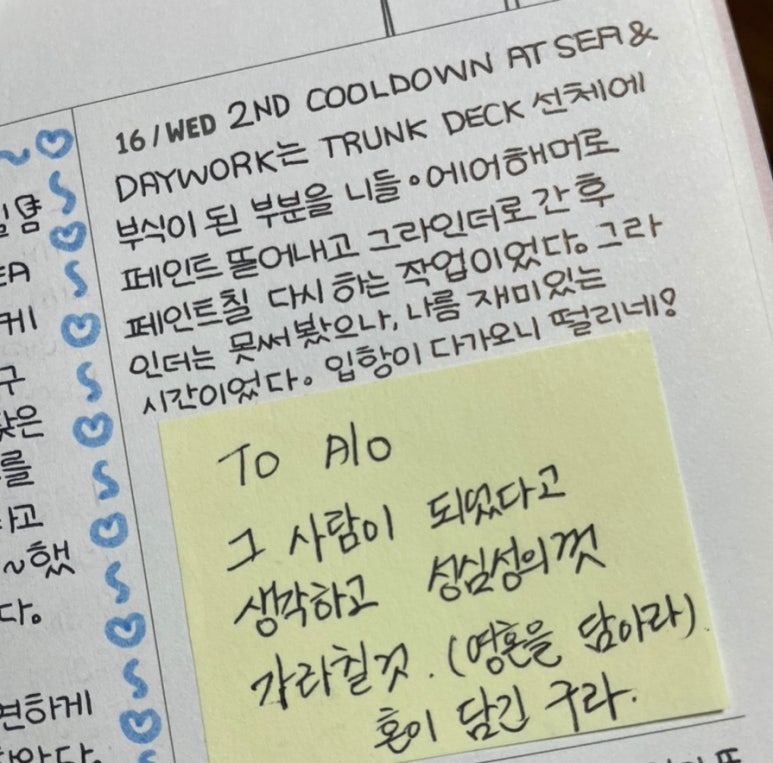 16/WED 2ND COOLDOWN AT SEA &
DAYWORK는 TRUNK DECK 선체에
부식이 된 부분을 니들•에어해머로
페인트 뜯어내고 그라인더로 간 후
페인트칠 다시 하는 작업이었다. 그라
인더는 못써봤으나, 나름 재미있는
시간이었다. 입항이 다가오니 떨리네?
TO A/O
그 사람이 되었다고
생각하고 성심성의껏
가라칠것. (영혼을 담아라).
혼이 담긴 구라.
EA
케
구
은
를
고
~했
다.
변하게